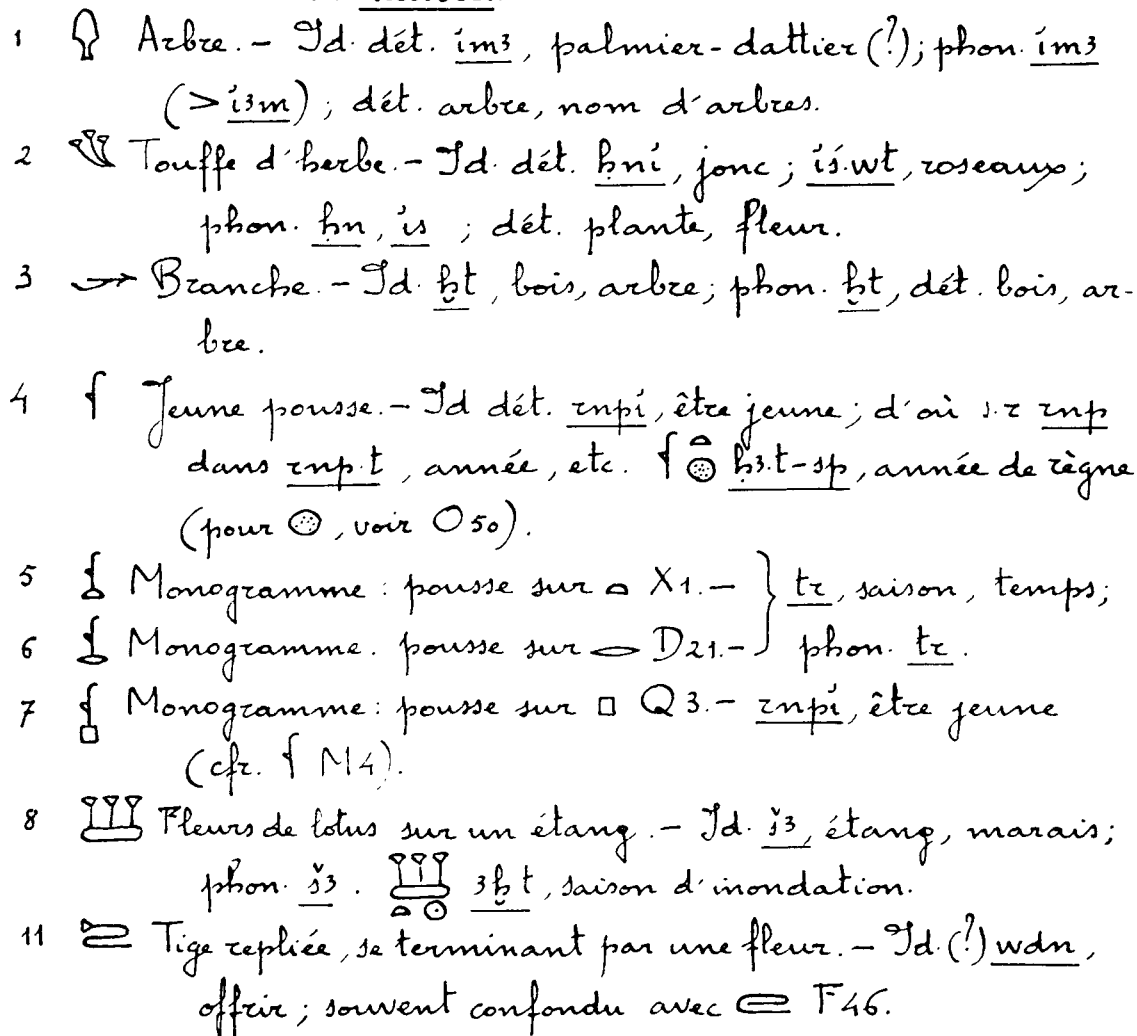 1 𓆭 Arbre. – Id. dét. im3, palmier-dattier (?); phon. im3
(> i3m) ; dét. arbre, nom d'arbres.
2 𓆰 Touffe d'herbe. – Id. dét. ḥni, jonc ; iś.wt, roseaux;
phon. ḥn, is ; dét. plante, fleur.
3 𓆱 Branche. – Id. ḫt, bois, arbre; phon. ḫt, dét. bois, ar-
bre.
4 𓆳 Jeune pousse. – Id dét. rnpi, être jeune; d'où s.r rnp
dans rnp.t, année, etc. 𓆳𓏏𓊗 ḥ3.t-sp, année de règne
(pour 𓊗, voir O50).
5 𓆴 Monogramme : pousse sur 𓏏 X1. – } tr, saison, temps;
6 𓆵 Monogramme. pousse sur 𓂋 D21. – } phon. tr.
7 𓆶 Monogramme : pousse sur 𓊪 Q3. – rnpi, être jeune
(cfr. 𓆳 M4).
8 𓆷 Fleurs de lotus sur un étang. – Id. š3, étang, marais;
phon. š3. 𓆷𓏏𓇳 3ḫt, saison d'inondation.
11 𓆺 Tige repliée, se terminant par une fleur. – Id. (?) wdn,
offrir ; souvent confondu avec 𓄖 F46.